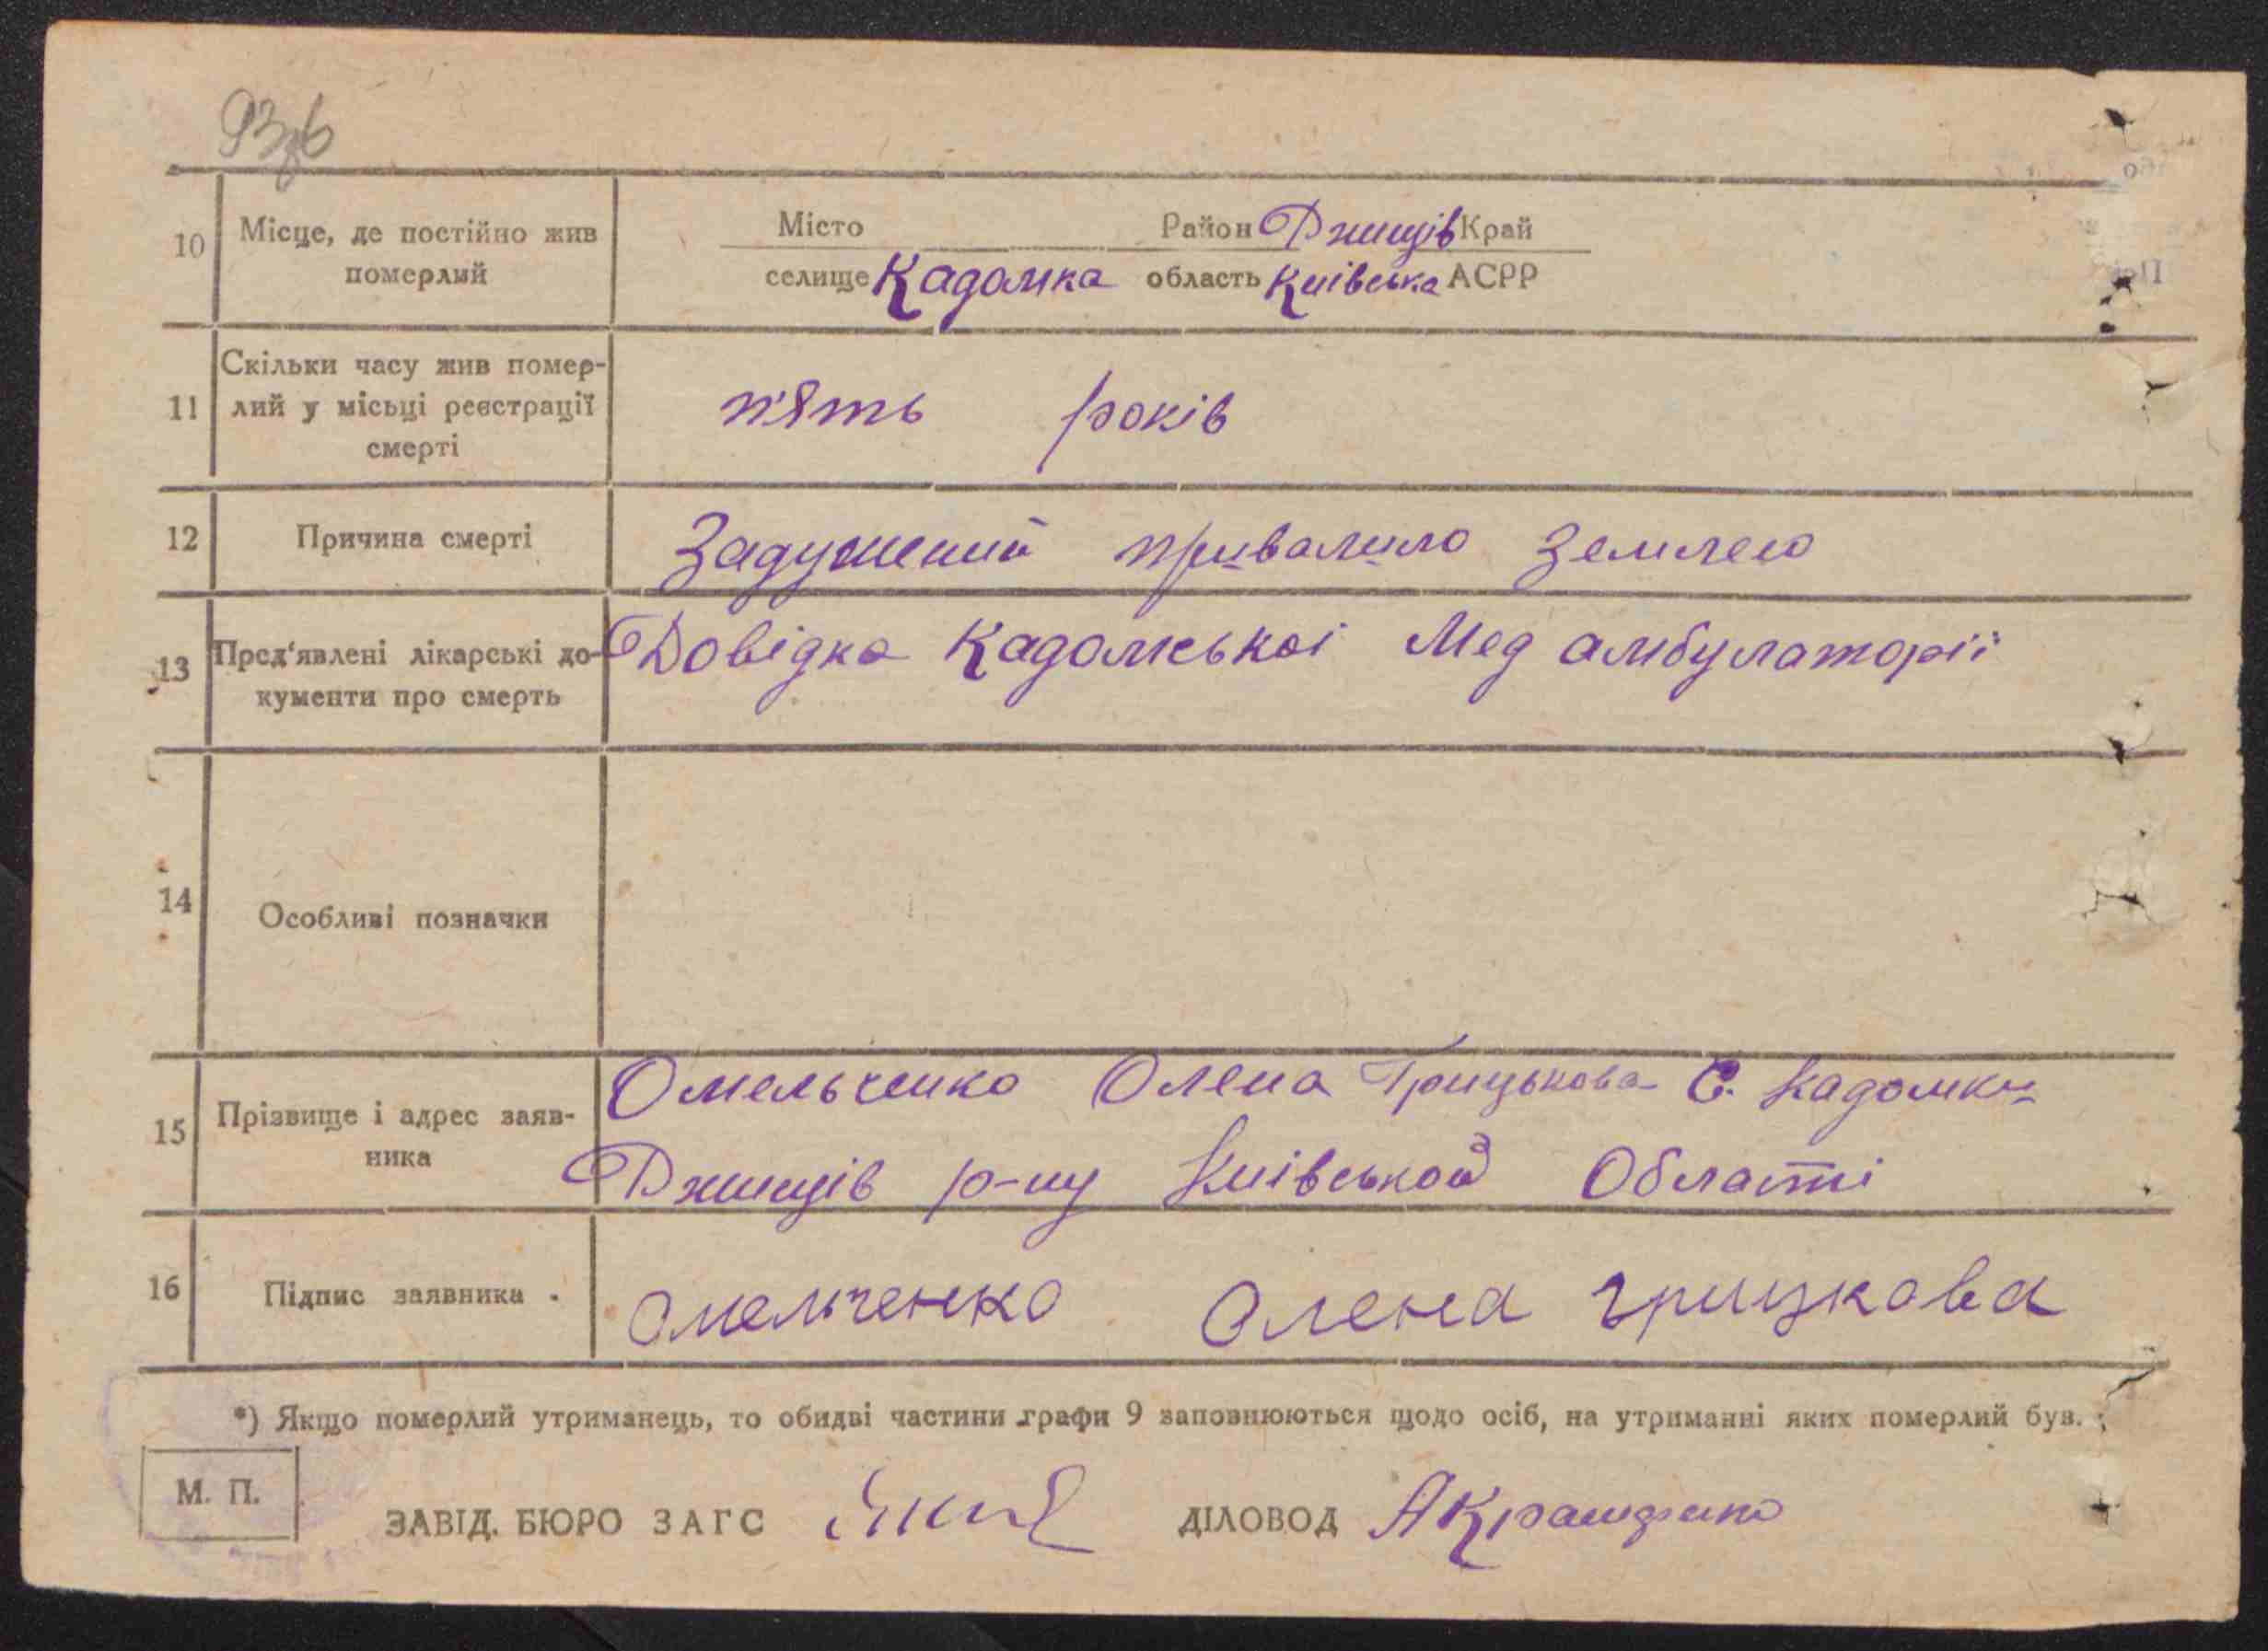 10 Місце, де постійно жив померлий
Місто Район Ржищів Край
селище Кадомка область Київська АСРР
11 Скільки часу жив помер-
лий у місьці реєстрації
смерті
п'ять років
12 Причина смерті Задушений привалило землею
13 Пред'явлені лікарські до-
кументи про смерть
Довідка Кадомської Мед амбулаторії
14 Особливі позначки
15 Прізвище і адрес заяв-
ника
Омельченко Олена Грицькова С. Кадомка
Ржищів р-ну Київськой Області
16 Підпис заявника . Омельченко Олена грицкова
*) Якщо померлий утриманець, то обидві частини графи 9 заповнюються щодо осіб, на утриманні яких померлий був.
М. П.
ЗАВІД. БЮРО ЗАГС ДІЛОВОД